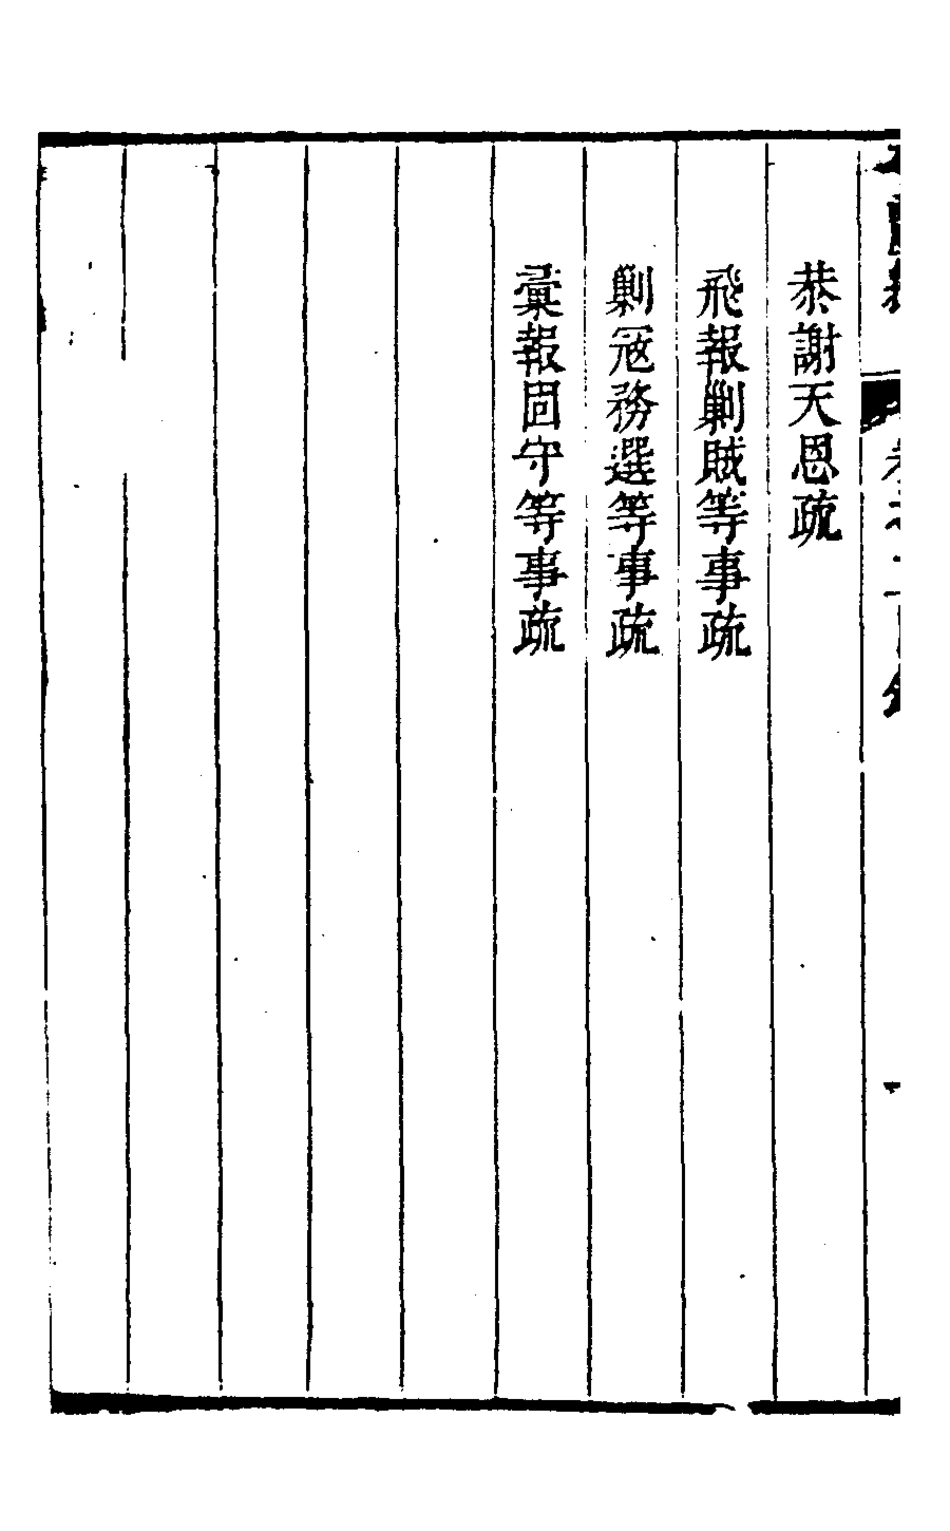 恭謝天恩疏
飛報剿賊等事疏
剿寇務選等事疏
彙報固守等事疏